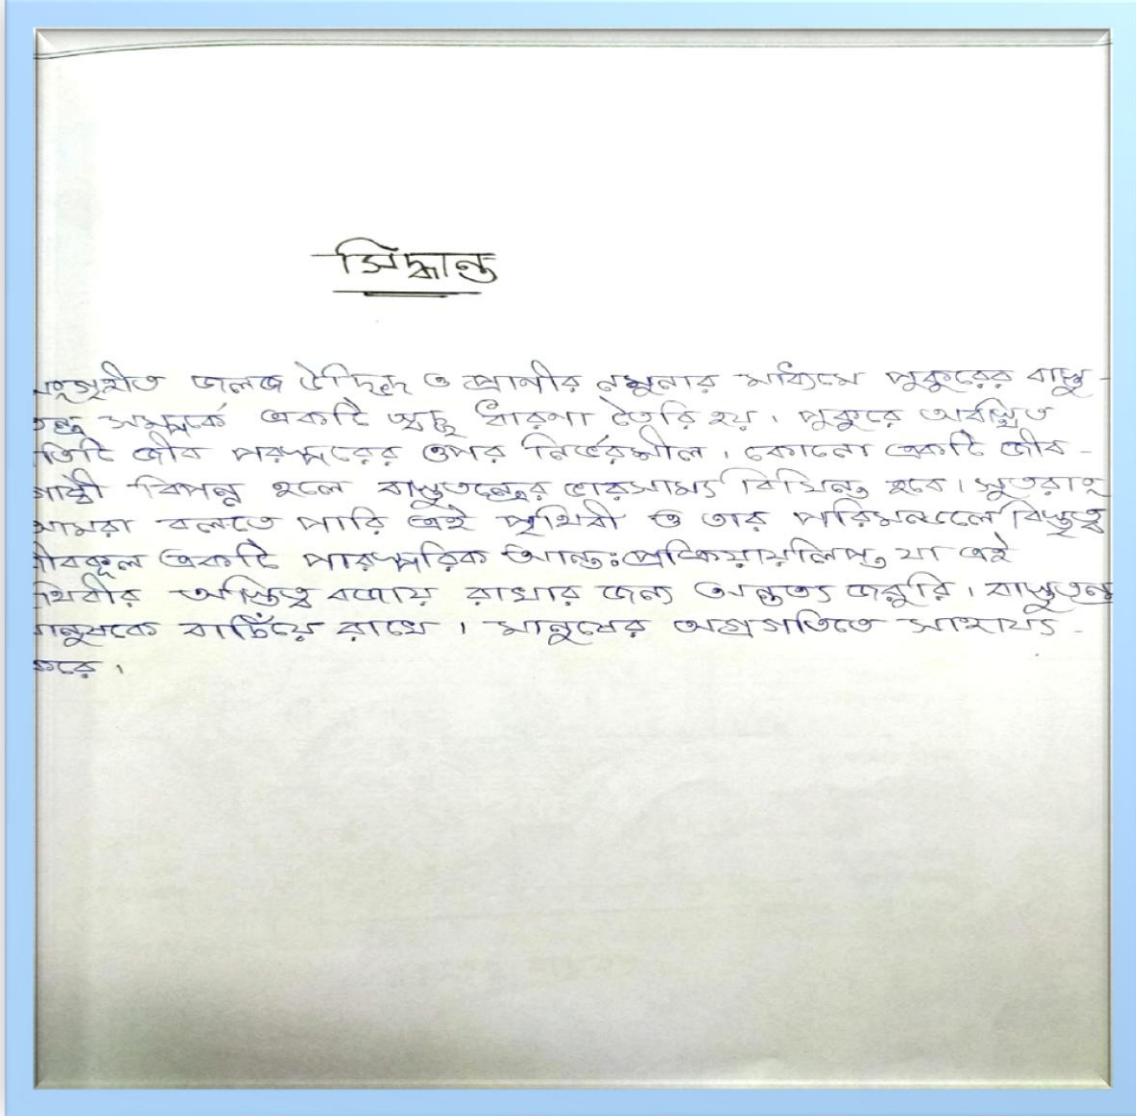 সিদ্ধান্ত
সংগৃহীত জলজ উদ্ভিদ ও প্রাণীর নমুনার মাধ্যমে পুকুরের বাস্তু-
তন্ত্র সম্পর্কে একটি স্বচ্ছ ধারণা তৈরি হয়। পুকুরে অবস্থিত
তিটি জীব পরস্পরের ওপর নির্ভরশীল। কোনো একটি জীব-
গোষ্ঠী বিপন্ন হলে বাস্তুতন্ত্রের ভারসাম্য বিঘ্নিত হবে। সুতরাং
আমরা বলতে পারি এই পৃথিবী ও তার পরিমন্ডলে বিস্তৃত
জীবকূল একটি পারস্পরিক আন্তঃপ্রক্রিয়ায় লিপ্ত যা এই
পৃথিবীর অস্তিত্ব বজায় রাখার জন্য অন্তত্য জরুরি। বাস্তুতন্ত্র
মানুষকে বাচিঁয়ে রাখে। মানুষের অগ্রগতিতে সাহায্য
করে।